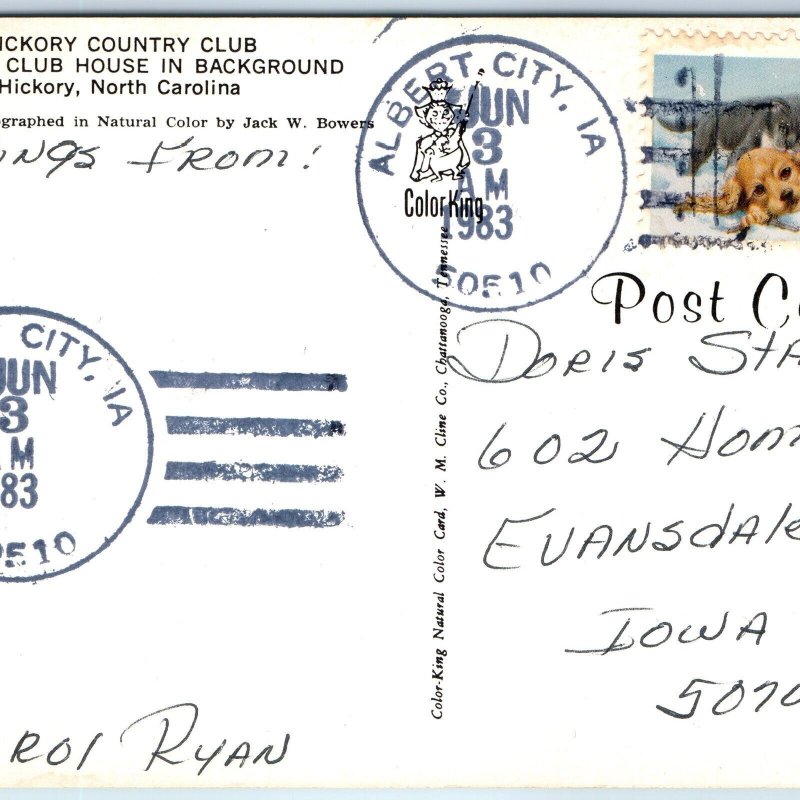 HICKORY COUNTRY CLUB
CLUB HOUSE IN BACKGROUND
Hickory, North Carolina
ographed in Natural Color by Jack W. Bowers
INGS FROM!
ALBERT CITY, IA
JUN
3
AM
1983
50510
ColorKing
Post C
Color-King Natural Color Card, W. M. Cline Co., Chattanooga, Tennessee
CITY, IA
JUN
3
AM
83
510
DORIS STA
602 HOM
EVANSDALE
IOWA
5070
ROI RYAN